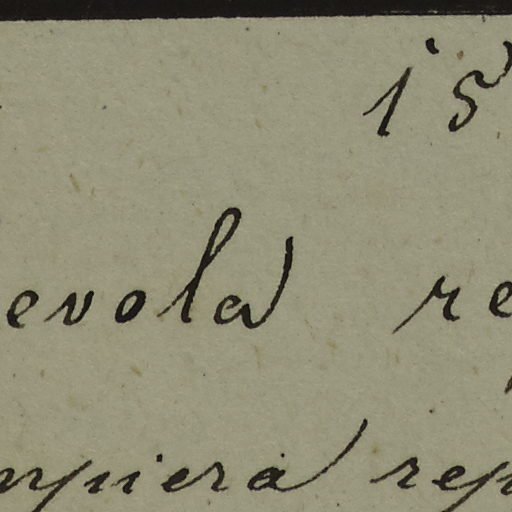 15
evola re
mpiera rep